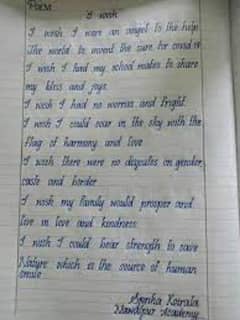 POEM
I wish
I wish I were an angel to the help
The world to invent the cure for covid 19
I wish I had my school mates to share
my bliss and joys.
I wish I had no worries and fright
I wish I could soar in the sky with the
flag of harmony and love
I wish there were no disputes on gender,
caste and border
I wish my family would prosper and
live in love and kindness
I wish I could bear strength to save
Nature which is the source of human
smile
Koirala
Academy